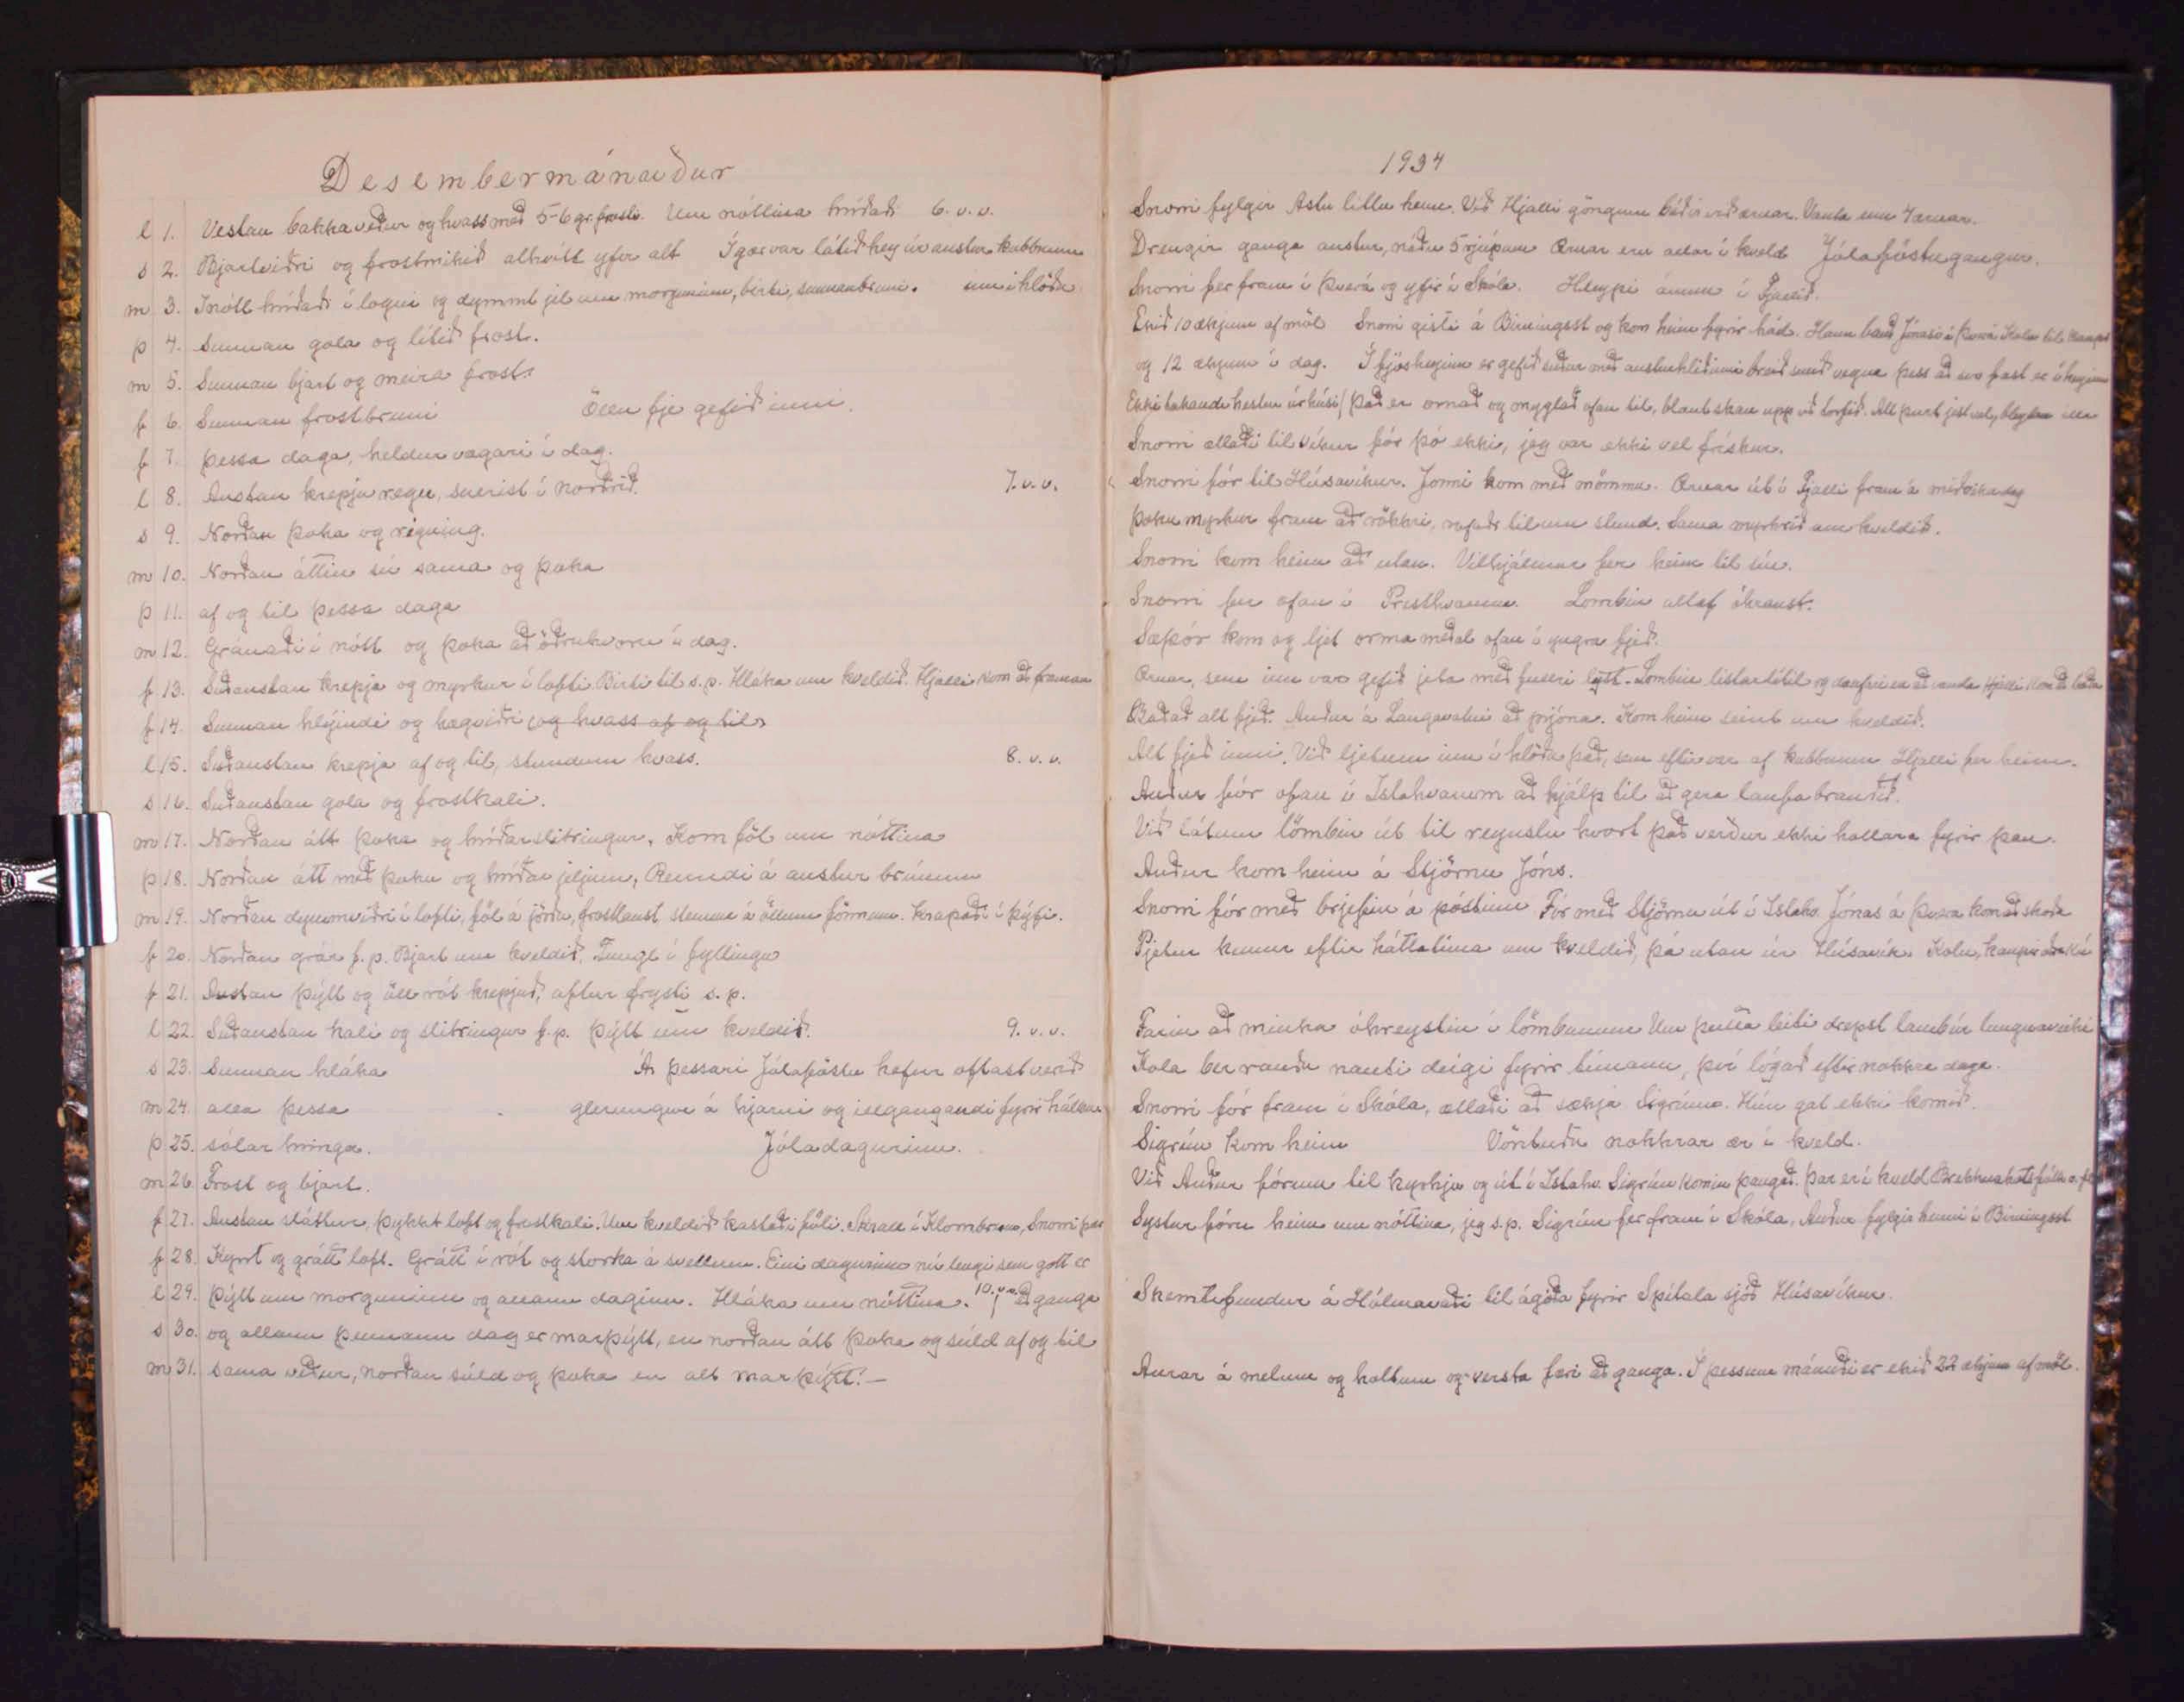 Desembermánaður
l 1. Vestan bakkaveður og hvass með 5-6 gr. frosti. Um nóttina hríðaði 6. v. v.
s 2. Bjartviðri og frostmikið alhvítt yfir alt Ígær var látið hey úr austur kubbnum
m 3. Í nótt hríðaði í logni og dymmt jel um morguninn, birti, sunnanbruni. inn í hlöðu
þ 4. Sunnan gola og lítið frost.
m 5. Sunnan bjart og meira frost.
f 6. Sunnan frostbruni Öllu fje gefið inni.
f 7. þessa daga, heldur vægari í dag.
l 8. Austan krepju regn, snerist í norðrið. 7. v. v.
s 9. Norðan þoka og rigning.
m 10. Norðan áttin sú sama og þoka
þ 11. af og til þessa daga
m 12. Gránaði í nótt og þoka að öðruhvoru í dag.
f 13. Suðaustan krepja og myrkur í lofti. Birti til s.p. Hláka um kveldið. Hjalli kom að framan
f 14. Sunnan hlýindi og hægviðri og hvass af og til
l 15. Suðaustan krepja af og til, stundum hvass. 8. v. v.
s 16. Suðaustan gola og frostkali.
m 17. Norðan átt þoka og hríðarslitringur. Kom föl um nóttina
þ 18. Norðan átt með þoku og hríðar jeljum, Renndi á austur brúnum
m 19. Norðan dymmviðri í lofti, föl á jörðu, frostlaust slemma á öllum förmum. krapaði í þýfi.
f 20. Norðan grár f.p. Bjart um kveldið. Tungl í fyllingu
f 21. Austan þýtt og öll rót krepjuð, aftur frysti s.p.
l 22. Suðaustan kali og slitringur f.p. þýtt um kveldið. 9. v. v.
s 23. Sunnan hláka Á þessari Jólaföstu hefur oftast verið
m 24. alla þessa glerungur á hjarni og illgangandi fyrir hálku
þ 25. sólar hringa. Jóladagurinn.
m 26. Frost og bjart.
f 27. Austan sláttur, þykkt loft og frostkali. Um kveldið kastaði föli. Skrall í Klömbrum, Snorri þar
f 28. Kyrrt og grátt loft. Grátt í rót og storka á svellum. Eini dagurinn nú lengi sem gott er
l 29. Þýtt um morguninn og allann daginn. Hláka um nóttina. 10. v. v. að ganga
s 30. og allann þennann dag er marþýtt, en norðan átt þoka og súld af og til
m 31. sama veður, norðan súld og þoka en alt marþýtt. —
1934
Snorri fylgir Ástu litlu heim. Við Hjalli göngum báðir við ærnar. Vanta um 4 ærnar.
Drengir ganga austur, náðu 5 rjúpum Ærnar eru allar í kveld Jólaföstugangur.
Snorri fer fram í Þverá og yfir í Skóla. Hleypi ánum í Fjallið.
Ekið 10 ækjum af möl Snorri gisti á Birningsst og kom heim fyrir hád. Hann bauð Jónasi á Þverá Kolu til kaups
og 12 ækjum í dag. Í fjósheyinu er gefið suður með austurhliðinni breið sneið vegna þess að svo fast er í heyinu
Ekki takandi hestur úr húsi / Það er ornað og myglað ofan til, blaut skán upp við torfið. Alt þurt jest vel,
Snorri ætlaði til Víkur fór þó ekki, jeg var ekki vel frískur.
Snorri fór til Húsavíkur. Jonni kom með mömmu. Ærnar út í Fjalli fram á miðvikudag
Þoku myrkur fram að rökkri, rofaði til um stund. Sama myrkrið um kveldið.
Snorri kom heim að utan. Vilhjálmur fer heim til sín.
Snorri fer ofan í Presthvamm. Lömbin altaf óhraust.
Sæþór kom og ljet ormameðal ofan í yngra fjeð.
Ærnar, sem inn var gefið jeta með fullri lyst. Lömbin listarlítil og daufari en að vanda Hjalli kom að baða
Baðað alt fjeð. Auður á Langavatni að prjóna. Kom heim seint um kveldið.
Alt fjeð inni. Við ljetum inn í hlöðu það, sem eftir var af kubbnum Hjalli fer heim.
Auður fór ofan í Ístahvamm að hjálp til að gera laufabrauðið.
Við látum lömbin út til reynslu hvort það verður ekki hollara fyrir þau.
Auður kom heim á Stjörnu Jóns.
Snorri fór með brjefin á póstinn Fór með Stjörnu út í Ístahv. Jónas á Þverá kom að skoða
Pjetur kemur eftir háttatíma um kveldið, þá utan úr Húsavík. Kolu, kaupir
Farin að minka óhreystin í lömbunum Um þetta leiti drepst lamb úr lungnaveiki
Kola ber rauðu nauti deigi fyrir tímann, því lógað eftir nokkra daga.
Snorri fór fram í Skóla, ætlaði að sækja Sigrúnu. Hún gat ekki komið.
Sigrún kom heim Vöntuðu nokkrar ær í kveld.
Við Auður fórum til kyrkju og út í Ístahv. Sigrún komin þangað. Þar er í kveld Brekknakotsfólk o.fl
Systur fóru heim um nóttina, jeg s.p. Sigrún fer fram í Skóla, Auður fylgir henni í Birningsst
Skemtifundur á Hólmavaði til ágóða fyrir Spítala sjóð Húsavíkur.
Aurar á melum og holtum og versta færi að ganga. Í þessum mánuði er ekið 22 ækjum af möl.